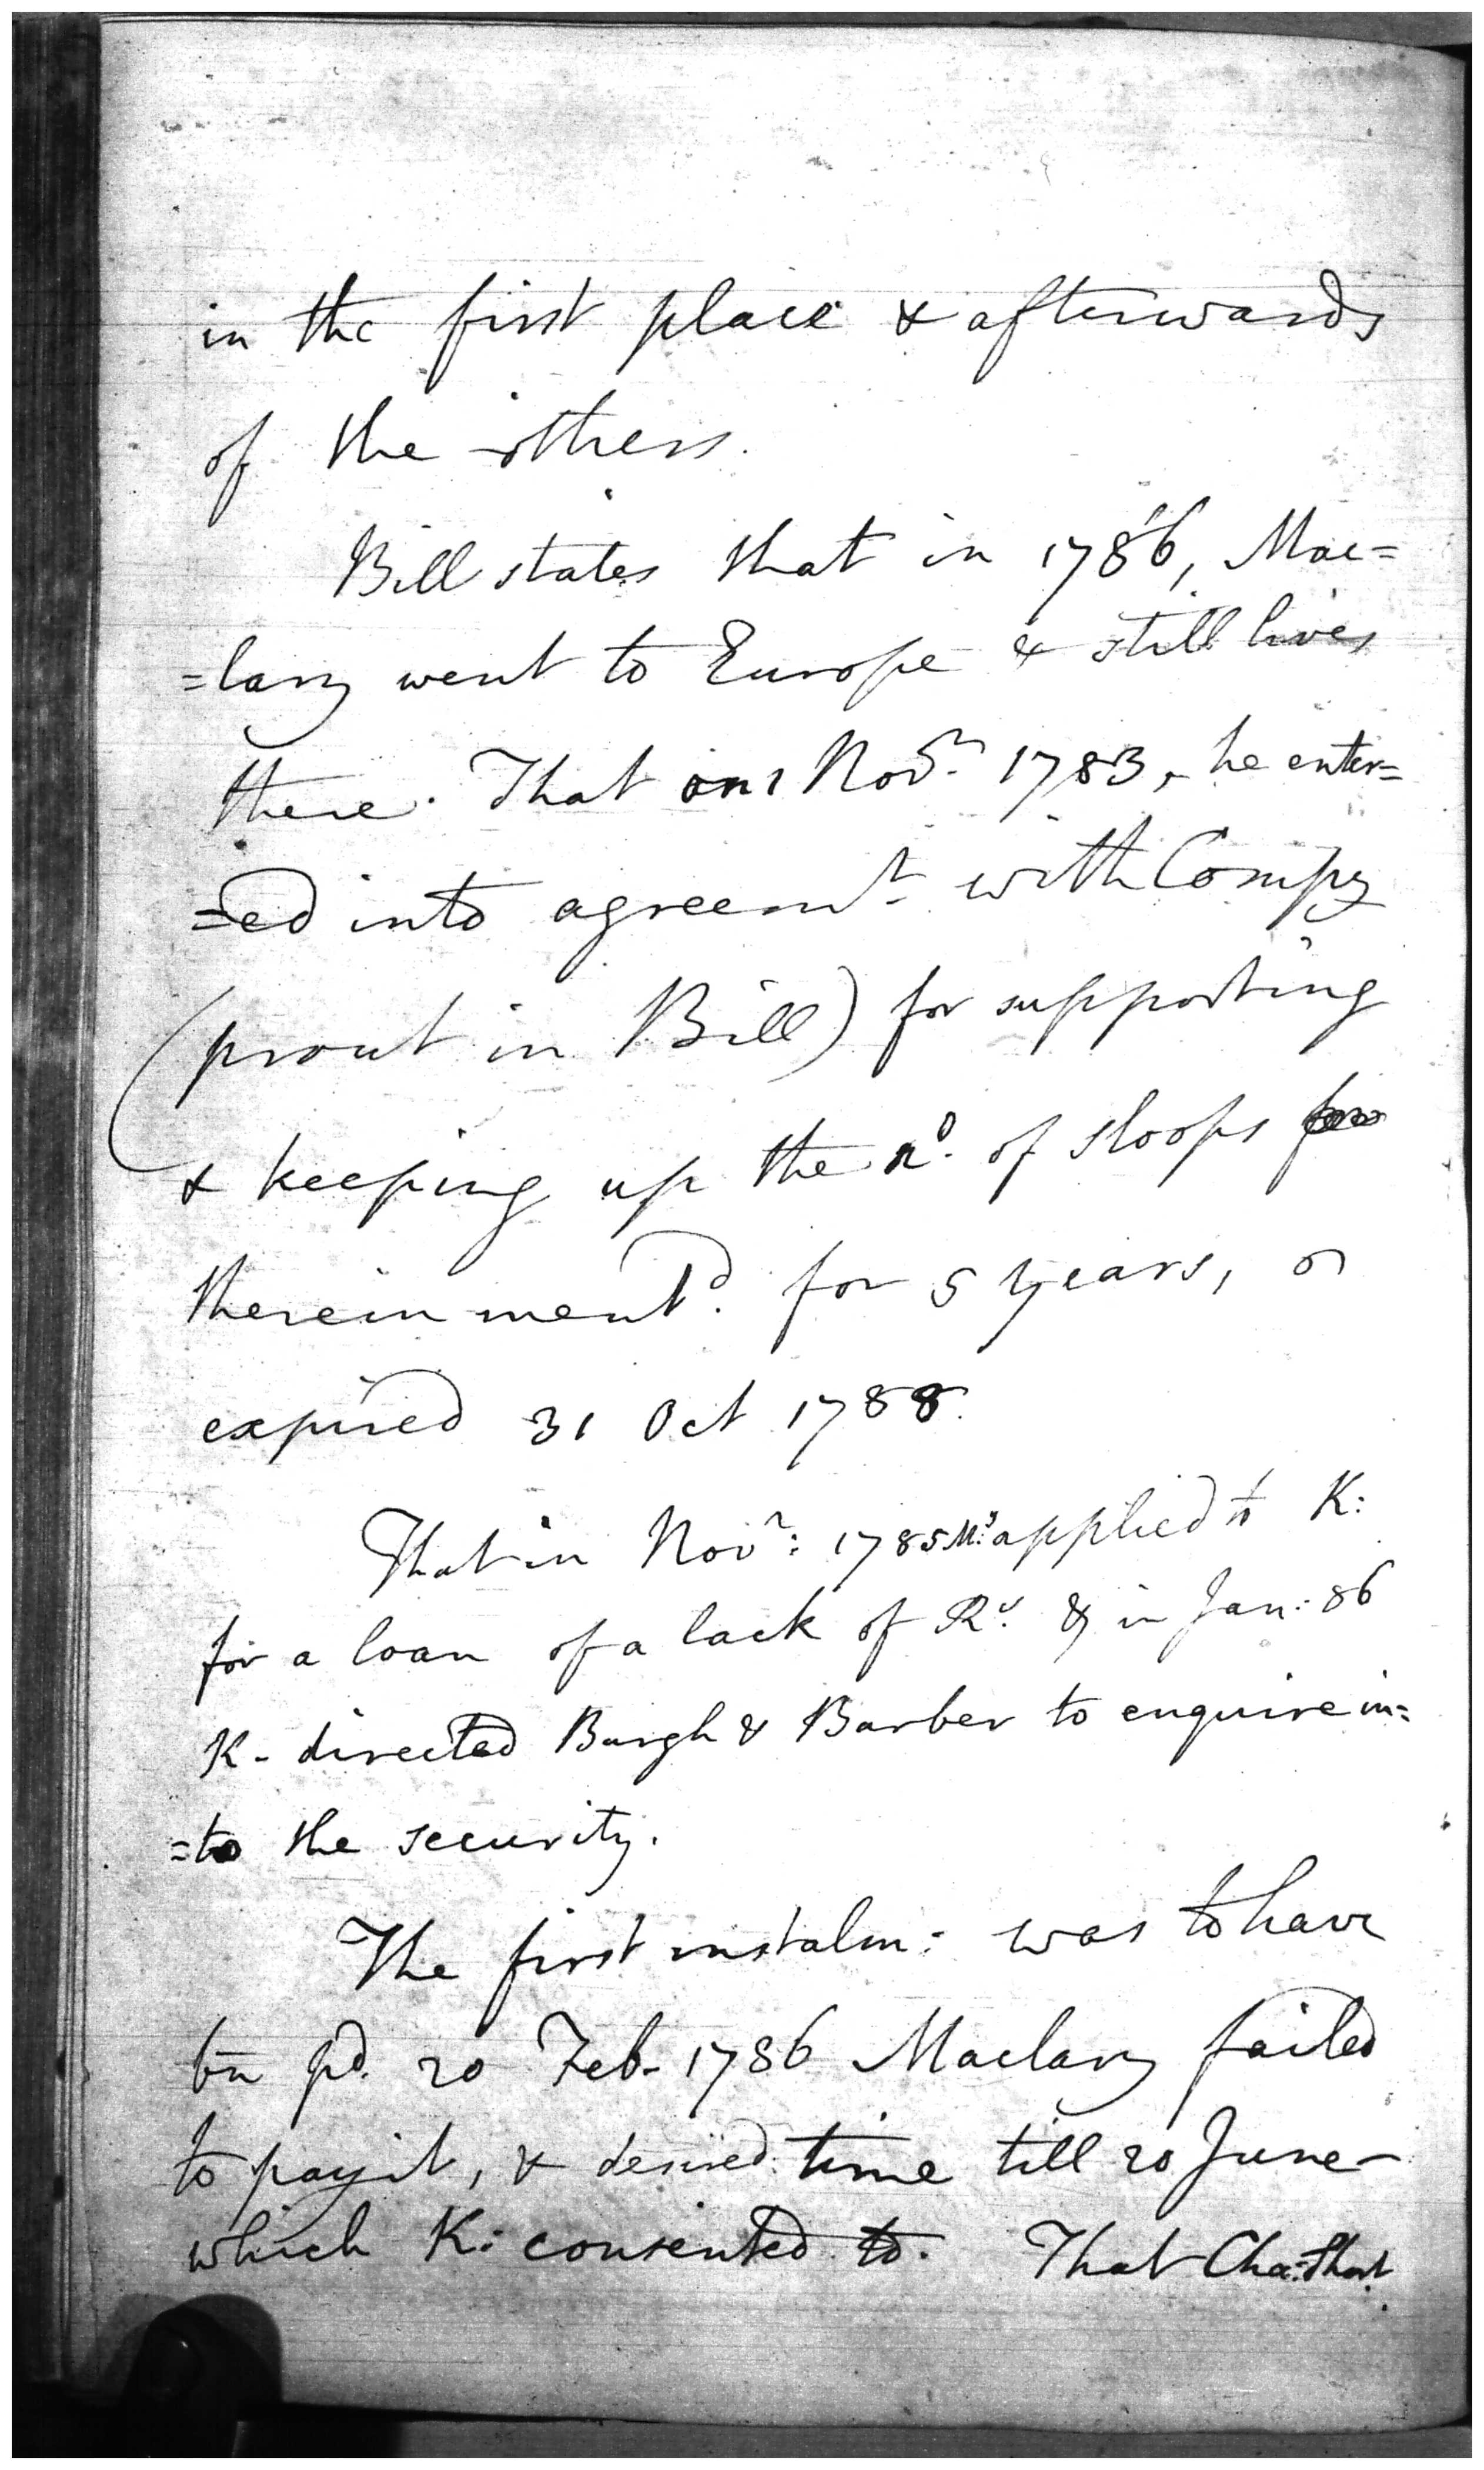 in the first place & afterwards
of the others.
Bill states that in 1786, Mac=
=lary went to Europe & still lives
there. That on 1 Novr. 1783, he enter=
=ed into agreemt. with Compy
(prout in Bill) for supporting
& keeping up the no. of sloops
therein mentd. for 5 years,
expired 31 Oct 1788.
That in Novr: 1785 M:y applied to K:
for a loan of a lack of Rs. & in Jan: 86
K- directed Burgh & Barber to enquire in=
=to the security.
The first instalm: was to have
bn pd. 20 Feb- 1786 Maclary failed
to pay it, & desired time till 20 June-
which K: consented to. That Cha: